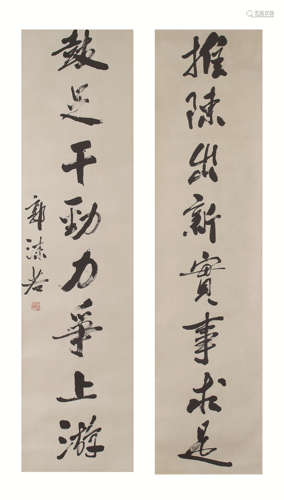 推陳出新實事求是
鼓足干勁力爭上游
郭沫若